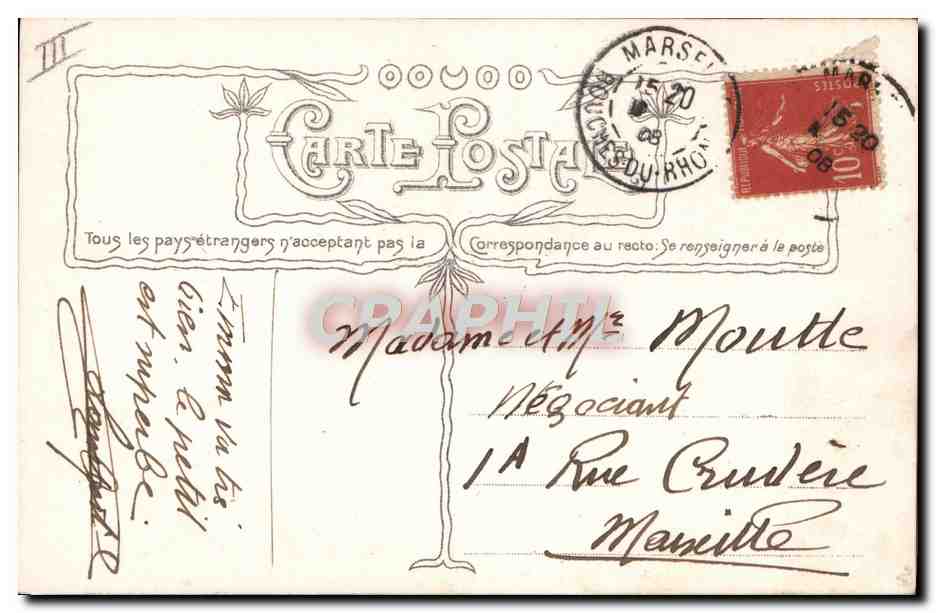 III
CARTE POSTALE
Tous les pays étrangers n'acceptant pas la Correspondance au recto: Se renseigner à la poste
MARSEI
15 20
08
BOUCHES-DU-RHON
MAR
15 20
4
08
POSTES
10c
REPUBLIQUE
CRAPHIL
Madame et Mr Moutte
Négociant
1A Rue Crudère
Marseille
va très
bien. le petit
est superbe.